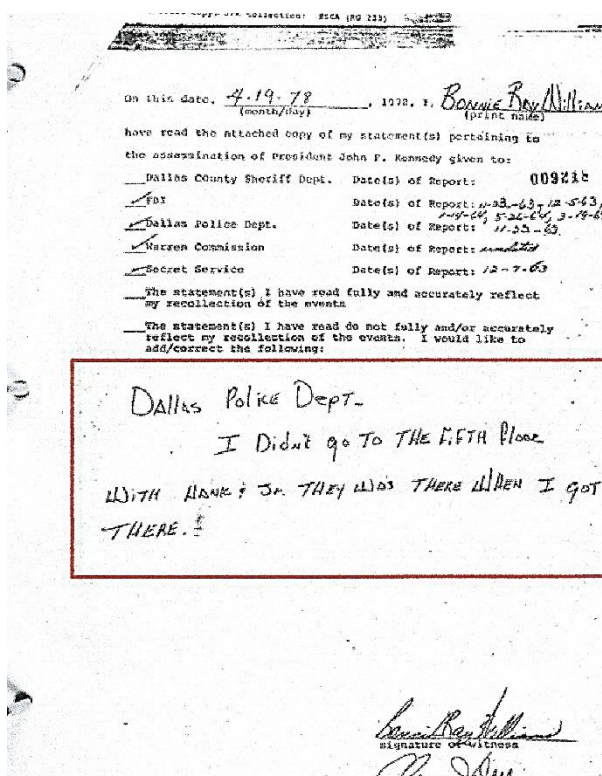 Copy: JFK Collection: HSCA (RG 233)
On this date, 4-19-78, 1978, I, Bonnie Ray William
(month/day) (print name)
have read the attached copy of my statement(s) pertaining to
the assassination of President John F. Kennedy given to:
Dallas County Sheriff Dept. Date(s) of Report: 009218
FBI Date(s) of Report: 11-23-63, 12-5-63,
1-14-64, 5-26-64, 3-19-6
Dallas Police Dept. 11-22-63
Warren Commission Date(s) of Report: undated
Secret Service Date(s) of Report: 12-7-63
The statement(s) I have read fully and accurately reflect
my recollection of the events
The statement(s) I have read do not fully and/or accurately
reflect my recollection of the events. I would like to
add/correct the following:
Dallas Police Dept-
I Didn't go To THE FiFTH Floor
WiTH HANK & Jr. THEY WAS THERE WHEN I GOT
THERE.
Bonnie Ray William
signature of witness